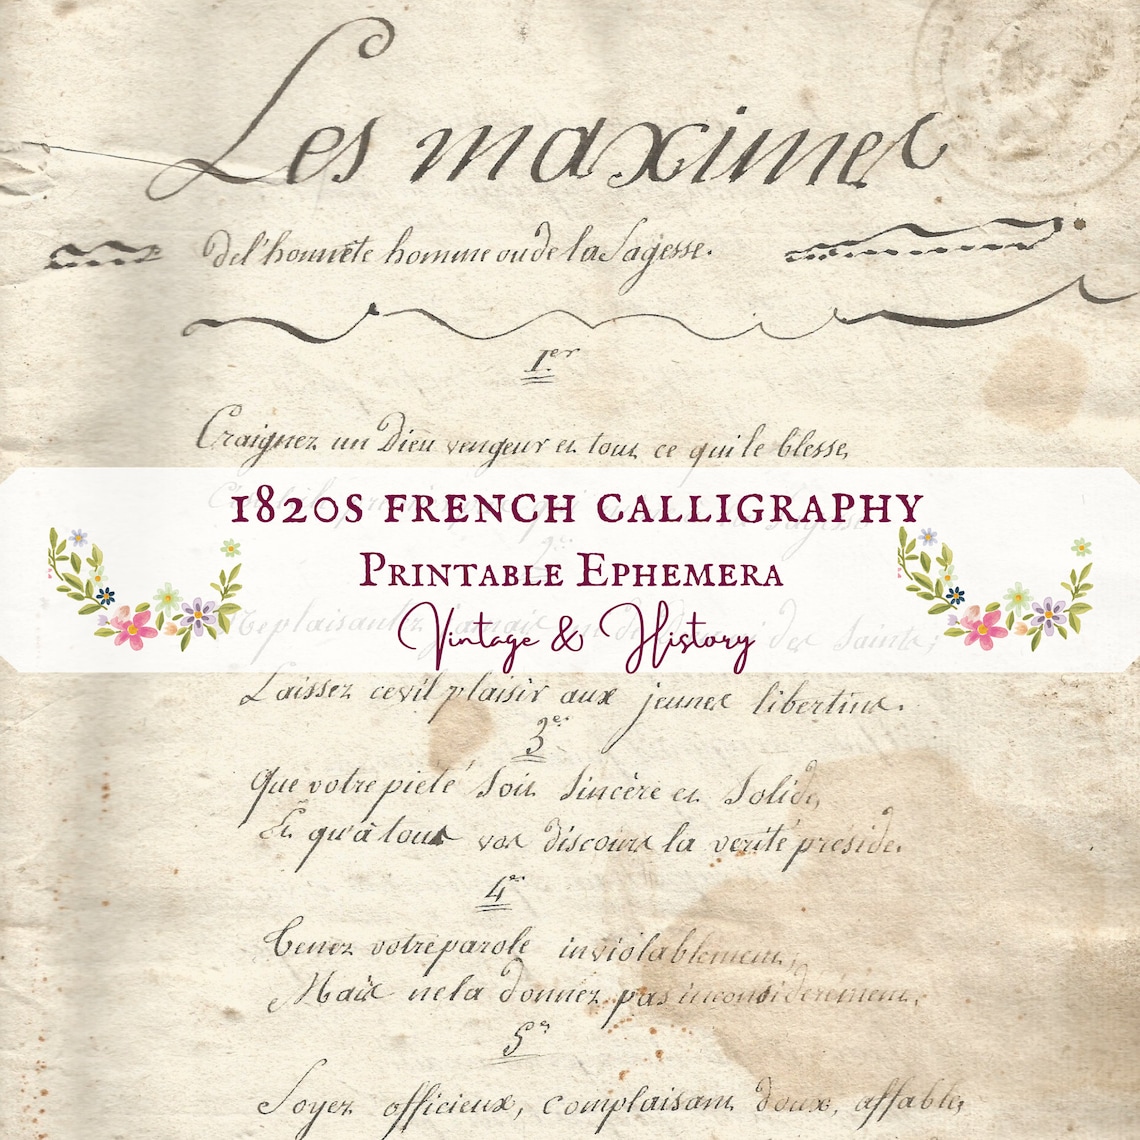 Les maximes
de l'honnête homme ou de la Sagesse.
1.er
Craignez un Dieu vengeur et tout ce qui le blesse,
1820s French Calligraphy
Printable Ephemera
Vintage & History
Laissez ce vil plaisir aux jeunes libertins.
3e.
Que votre pieté soit Sincère et Solide,
Et qu'à tous vos discours la verité préside.
4e.
Tenez votre parole inviolablement,
Mais ne la donnez pas inconsidérement.
5e
Soyez officieux, complaisant doux, affable,